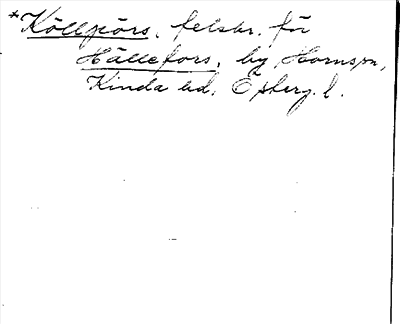 *Köllpörs, felskr. för
Hällefors, by, Hornspn,
Kinda hd, Ö sberg. l.